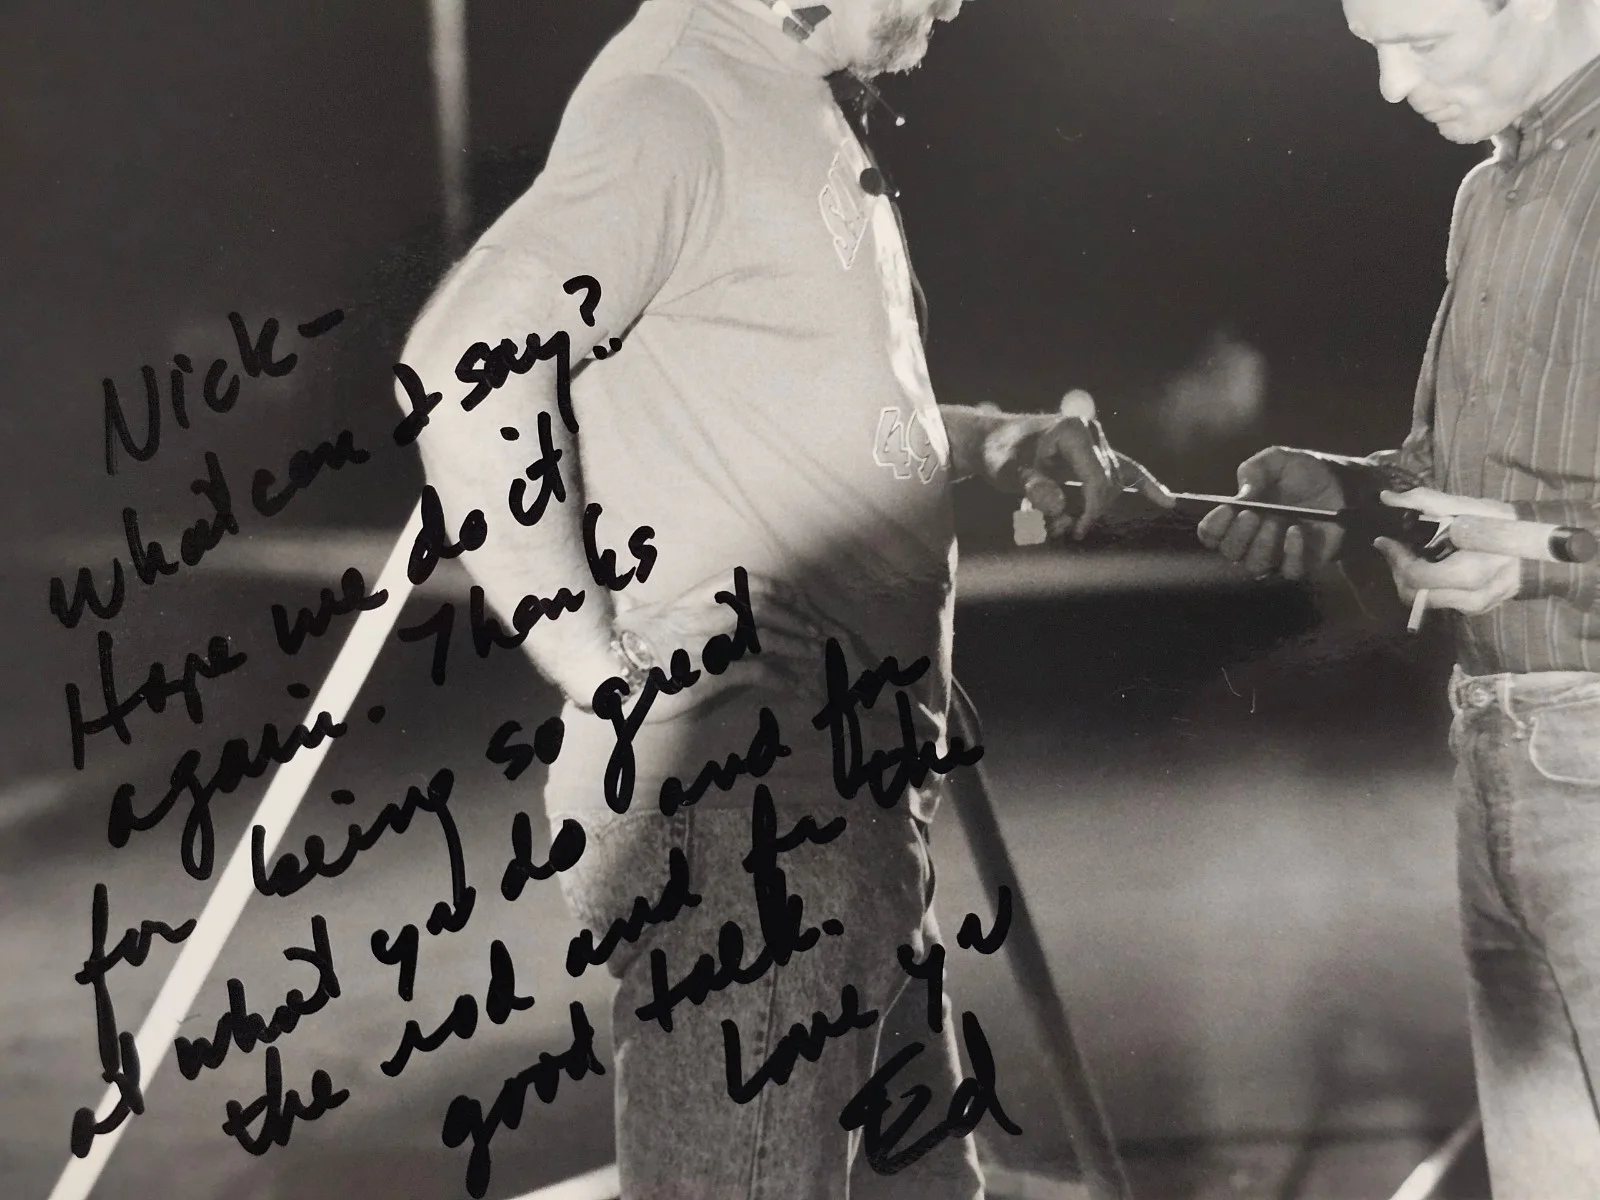 Nick-
what can I say?
Hope we do it
again. Thanks
for being so great
at what you do and for
the rod and for the
good talk.
Love you
Ed
49